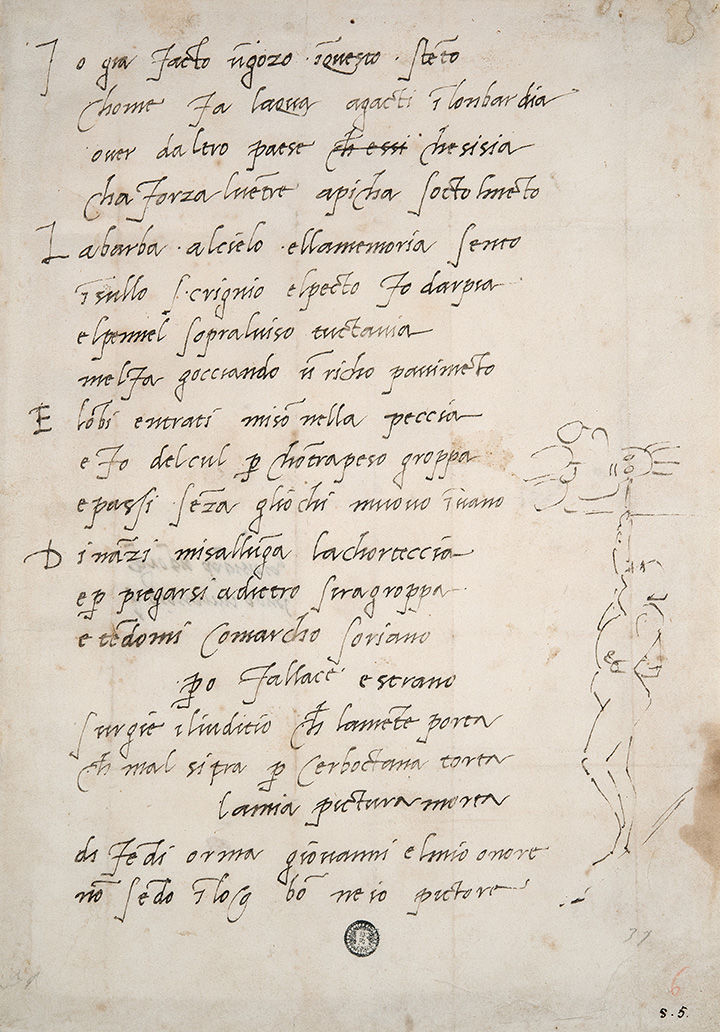 Io gia facto ūgozo īquesto · stēto
chome fa laqua agacti ī lonbardia
over daltro paese ch̄ essi chesisia
cha forza lvētre apicha socto lmēto
La barba · alcielo · ellamemoria sento
īsullo scrignio elpecto fo darpia
elpennel sopralviso tuctavia
melfa gocciando ū richo pavimēto
E lōbi entrati misō nella peccia
e fo delcul p̱ chōtrapeso groppa
e passi sēza gliochi muovo īvano
Dināzi misallūga lachorteccia
e p̱ piegarsi adietro siragroppa
e tēdomi Comarcho soriano
p̱o fallace e strano
surgie iliuditio ch̄ lamēte porta
ch̄ mal si tra p̱ cerboctana torta
lamia pictura morta
di fēdi orma giovanni elmio onore
nō sēdo ī log bō ne io pictore
31
6
s. 5.